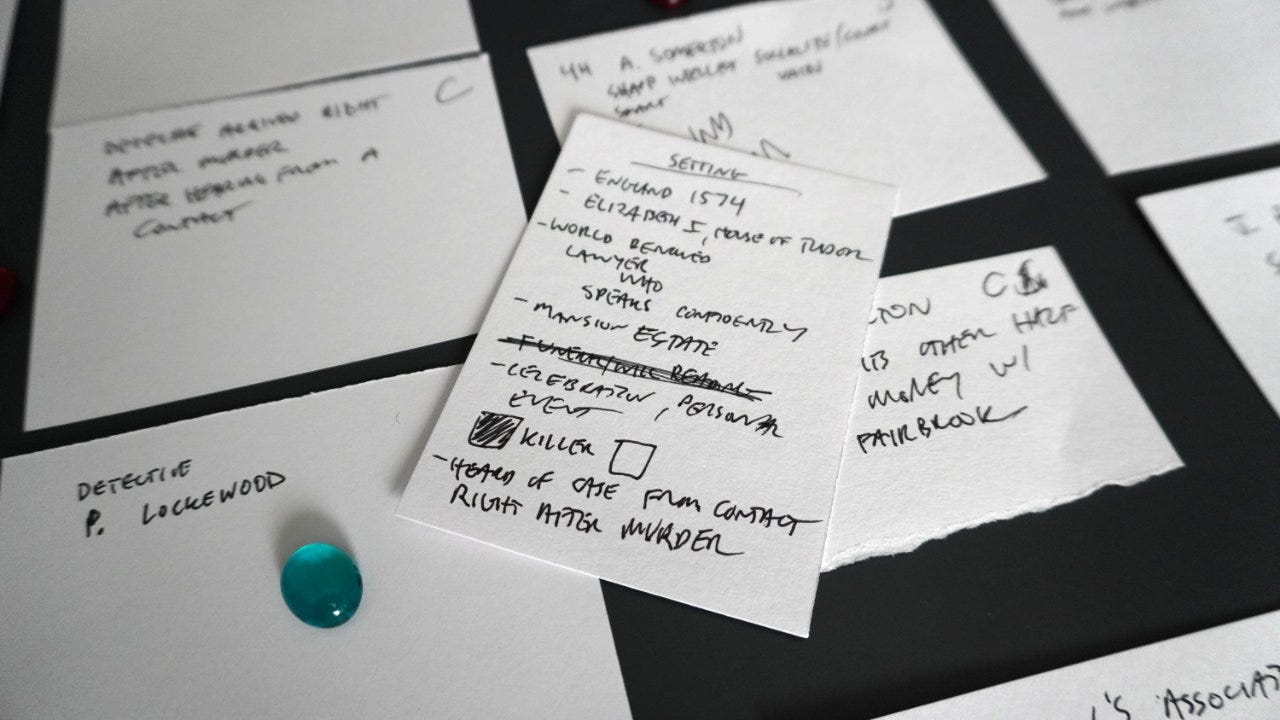 C
DETECTIVE ARRIVED RIGHT
AFTER MURDER
AFTER HEARING FROM A
CONTACT
44 A. SOMERTON
SHARP WITTED SOCIALITE/COUNT
VAIN
SMART
SETTING
- ENGLAND 1574
- ELIZABETH I, HOUSE OF TUDOR
- WORLD RENOWNED
LAWYER
WHO
SPEAKS CONFIDENTLY
- MANSION ESTATE
- FUNERAL/WILL READING
- CELEBRATION, PERSONAL
EVENT
KILLER
- HEARD OF CASE FROM CONTACT
RIGHT AFTER MURDER
TON C
OTHER HALF
MONEY W/
FAIRBROOK
DETECTIVE
P. LOCKEWOOD
I
'S ASSOCIAT